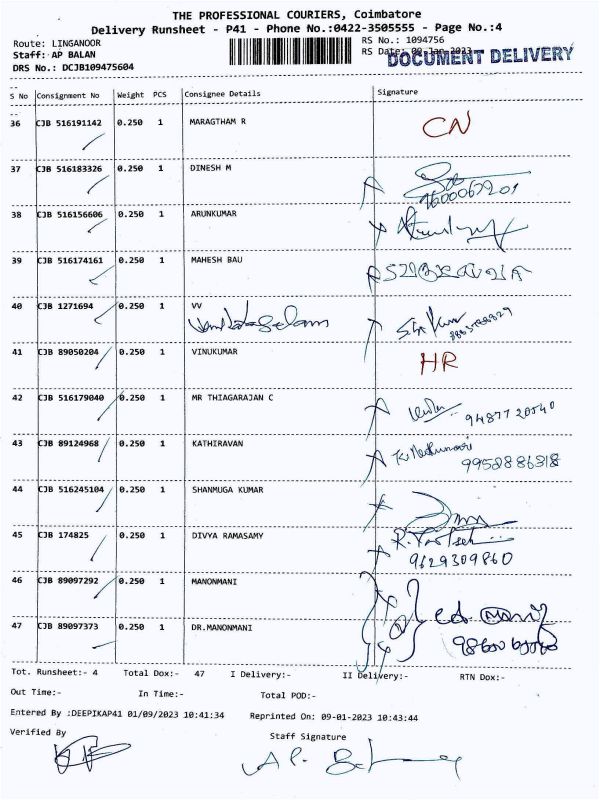 THE PROFESSIONAL COURIERS, Coimbatore
Delivery Runsheet - P41 - Phone No.:0422-3505555 - Page No.:4
Route: LINGANOOR
RS No.: 1094756
Staff: AP BALAN
RS Date: 09-Jan-2023
DOCUMENT DELIVERY
DRS No.: DCJB109475604
S No Consignment No Weight PCS Consignee Details Signature
36 CJB 516191142 0.250 1 MARAGTHAM R CN
37 CJB 516183326 0.250 1 DINESH M
38 CJB 516156606 0.250 1 ARUNKUMAR
39 CJB 516174161 0.250 1 MAHESH BAU
40 CJB 1271694 0.250 1 VV
41 CJB 89050204 0.250 1 VINUKUMAR HR
42 CJB 516179040 0.250 1 MR THIAGARAJAN C
43 CJB 89124968 0.250 1 KATHIRAVAN
9952886318
44 CJB 516245104 0.250 1 SHANMUGA KUMAR
45 CJB 174825 0.250 1 DIVYA RAMASAMY
9629309860
46 CJB 89097292 0.250 1 MANONMANI
47 CJB 89097373 0.250 1 DR.MANONMANI
Tot. Runsheet:- 4 Total Dox:- 47 I Delivery:- II Delivery:- RTN Dox:-
Out Time:- In Time:- Total POD:-
Entered By :DEEPIKAP41 01/09/2023 10:41:34 Reprinted On: 09-01-2023 10:43:44
Verified By Staff Signature